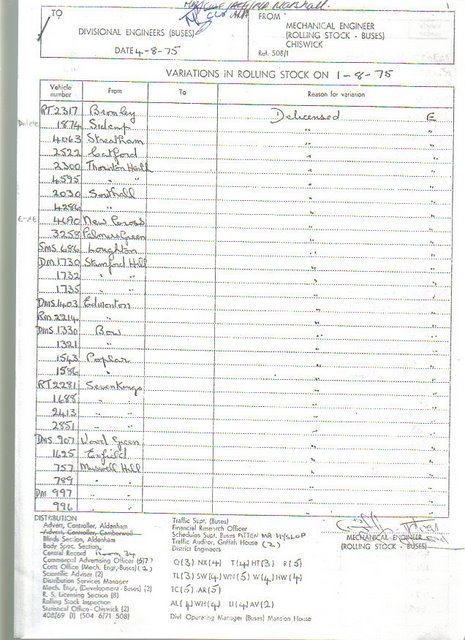 TO
DIVISIONAL ENGINEERS (BUSES)
DATE 4-8-75
FROM
MECHANICAL ENGINEER
(ROLLING STOCK - BUSES)
CHISWICK
Ref. 508/1
VARIATIONS IN ROLLING STOCK ON 1-8-75
Vehicle number From To Reason for variation
RT 2317 Bromley Delicensed E
1874 Sidcup " "
4063 Streatham " "
2522 Catford " "
2300 Thornton Heath " "
4595 " " " "
2030 Southall " "
4286 " " "
4690 New Cross " "
3258 Palmers Green " "
SMS 686 Loughton " "
DM 1730 Stamford Hill " "
1732 " " " "
1735 " " " "
DMS 1403 Edmonton " "
RM 2214 " " "
DMS 1330 Bow " "
1321 " " "
1543 Poplar " "
1586 " " "
RT 2281 Seven Kings " "
1688 " " " "
2413 " " " "
2851 " " " "
DMS 907 Wood Green " "
1625 Enfield " "
757 Muswell Hill " "
789 " " " "
DM 997 " " " "
996 " " " "
DISTRIBUTION
Advert. Controller, Aldenham
Advert. Controller, Camberwell
Blinds Section, Aldenham
Body Spec. Section,
Central Record Room 24
Commercial Advert. Officer (6)7?
Costs Office (Mech. Engr, Buses) (2)
Scientific Adviser (2)
Distribution Services Manager
Mech. Engr, (Development - Buses) (2)
R. S. Licensing Section (8)
Rolling Stock Inspection
Statistical Office - Chiswick (2)
408/69 (I) (504 6/71 508)
Traffic Supt. (Buses)
Financial Research Officer
Schedules Supt. Buses ATTEN MR HYSLOP
Traffic Auditor, Griffith House (2)
District Engineers
Q(3) NX(4) T(4) HT(3) R(5)
TL(3) SW(4) WN(5) W(4) HW(4)
TC(5) AR(5)
AL(4) WH(4) U(4) AV(2)
Divl Operating Manager (Buses) Mansion House
MECHANICAL ENGINEER
(ROLLING STOCK - BUSES)